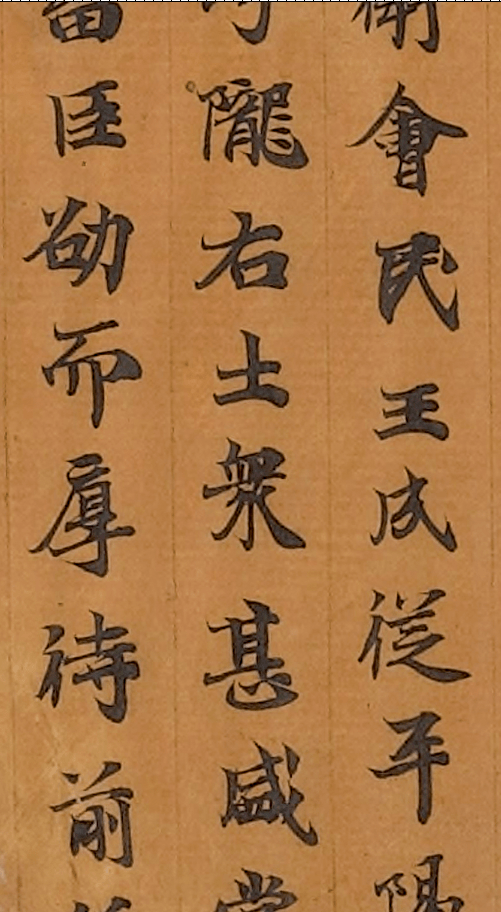 會民王成從平
隴右士衆甚盛
臣而厚待前